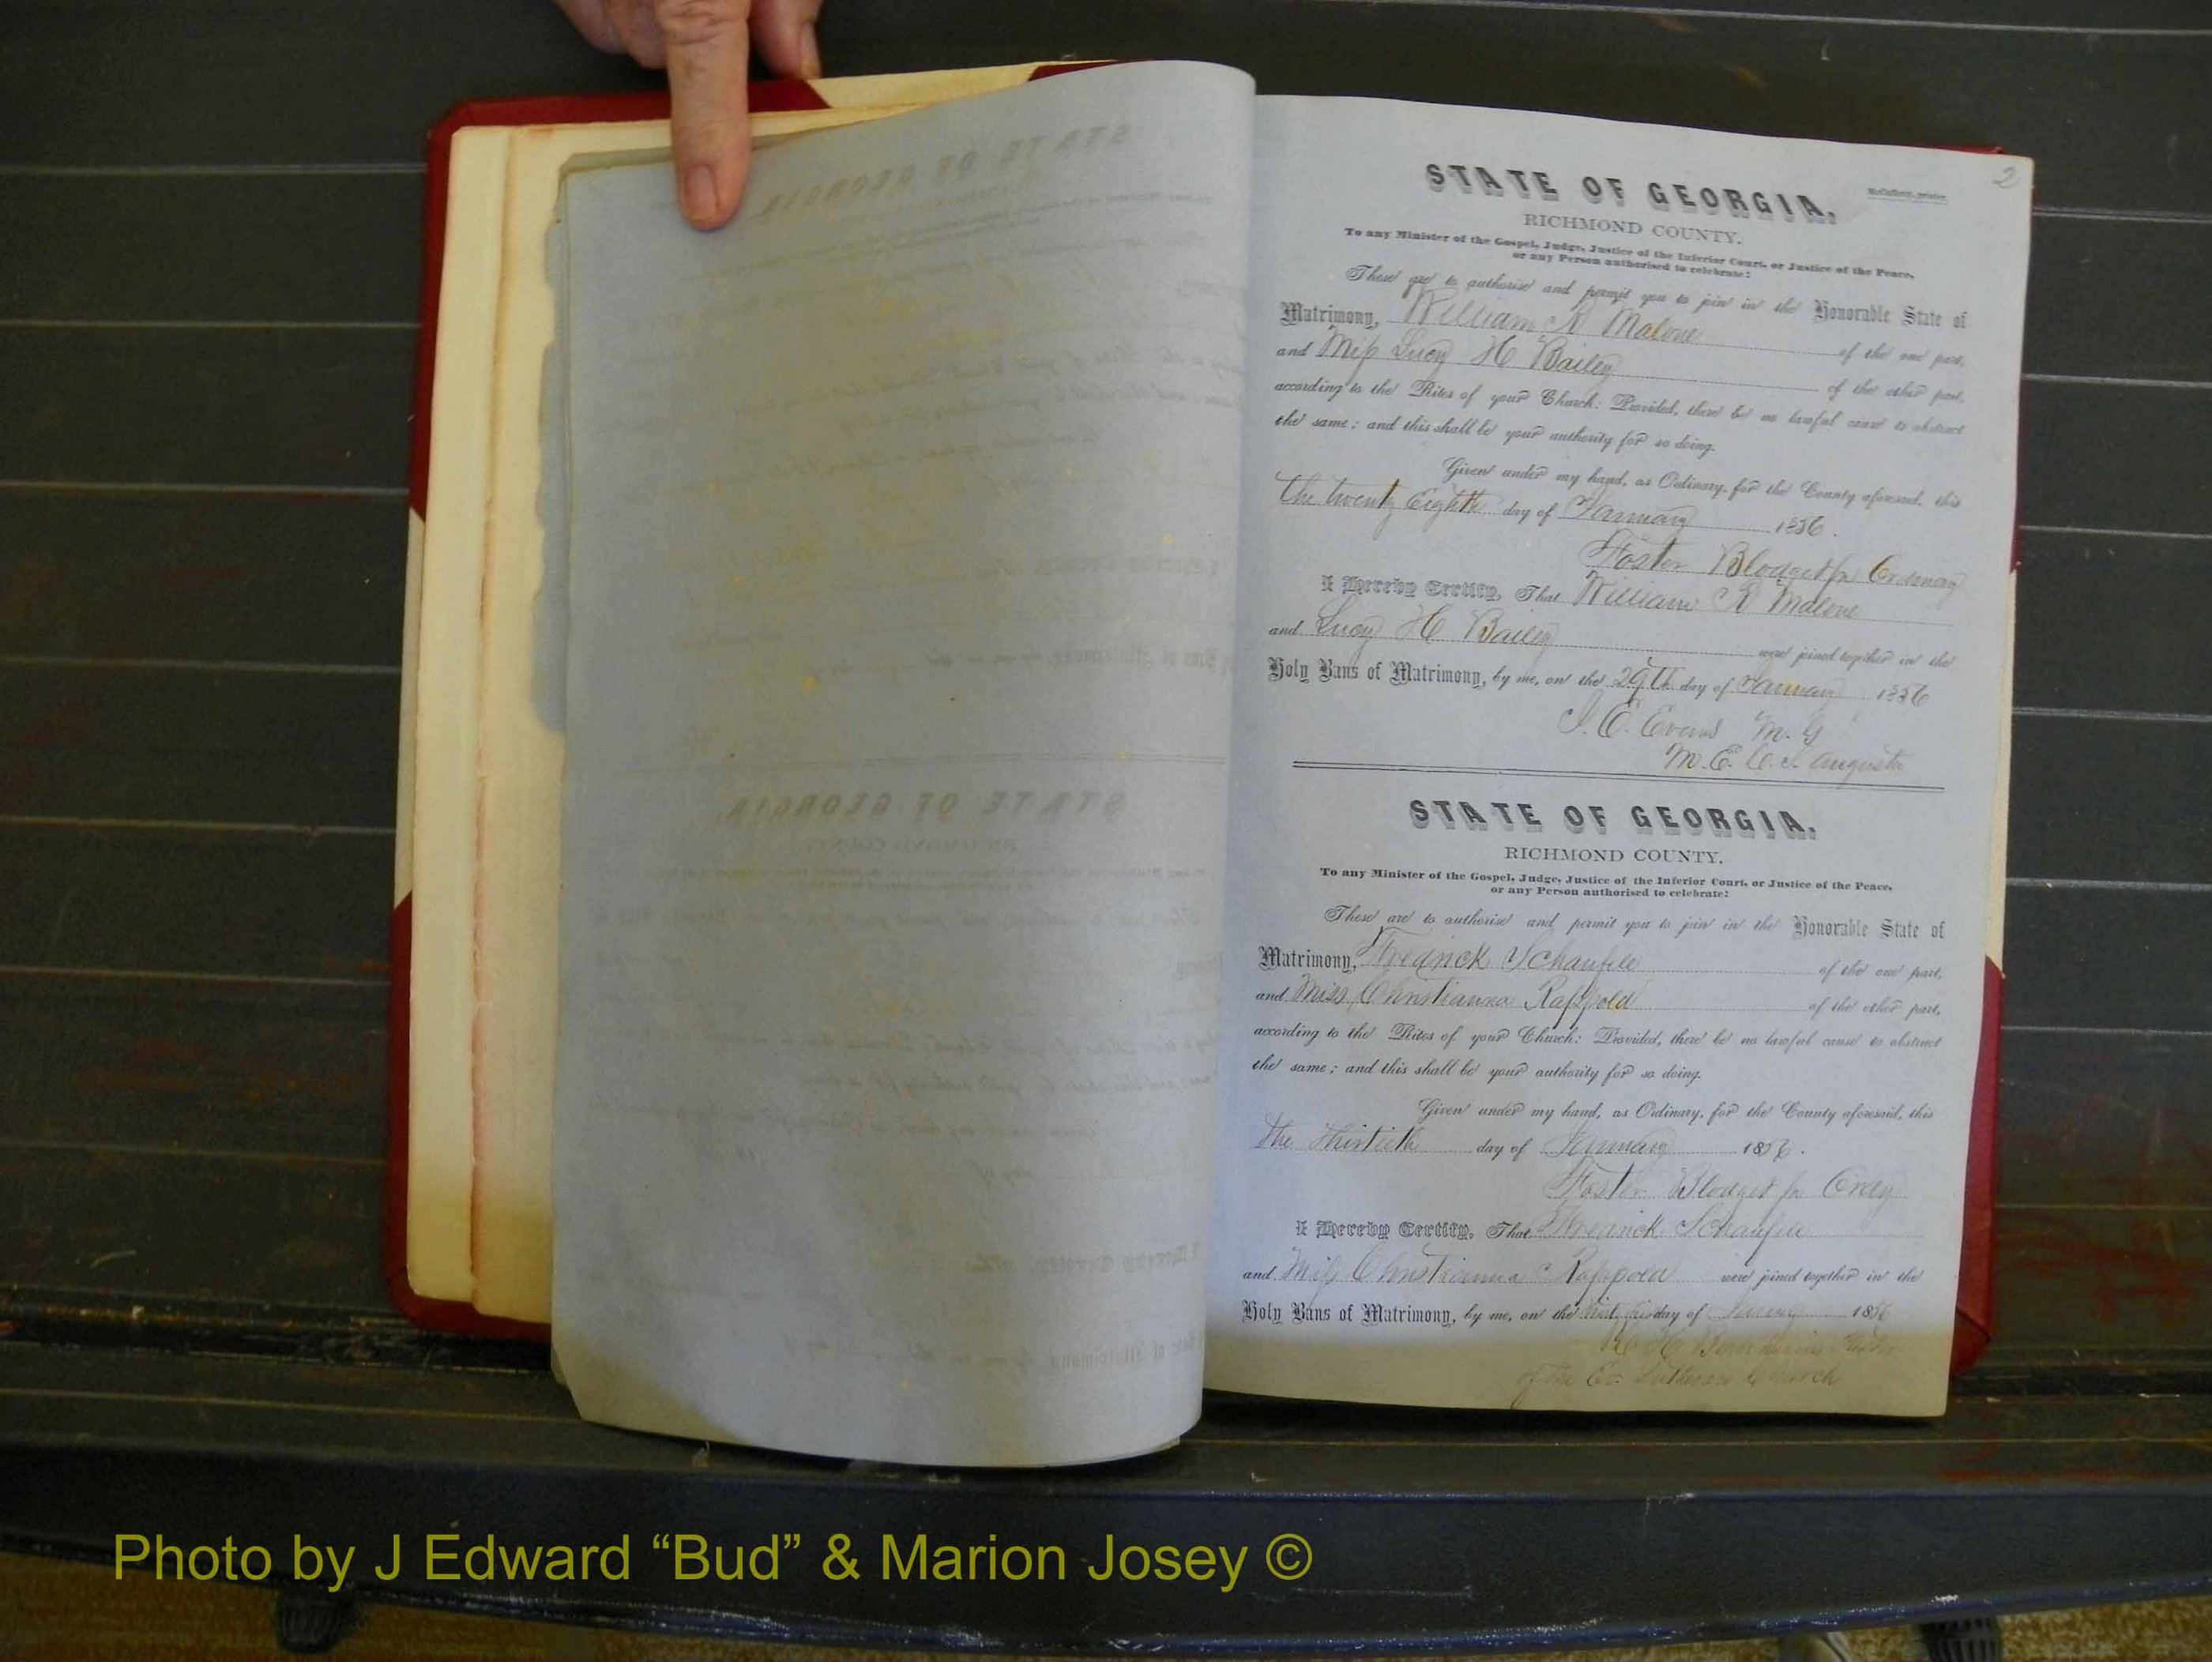 2
McCafferty, printer.
STATE OF GEORGIA,
RICHMOND COUNTY.
To any Minister of the Gospel, Judge, Justice of the Inferior Court, or Justice of the Peace,
or any Person authorised to celebrate:
These are to authorise and permit you to join in the Honorable State of
Matrimony, William R Malone of the one part,
and Miss Lucy H Bailey of the other part,
according to the Rites of your Church: Provided, there be no lawful cause to obstruct
the same; and this shall be your authority for so doing.
Given under my hand, as Ordinary, for the County aforesaid, this
the twenty Eighth day of January 1856.
Foster Blodget jr Ordinary
I Hereby Certify, That William R Malone
and Lucy H Bailey were joined together in the
Holy Bans of Matrimony, by me, on the 29th day of January 1856
J. E. Evans M. G
M. E. C. S. Augusta
STATE OF GEORGIA.
RICHMOND COUNTY.
To any Minister of the Gospel, Judge, Justice of the Inferior Court, or Justice of the Peace,
or any Person authorised to celebrate:
These are to authorise and permit you to join in the Honorable State of
Matrimony, Fredrick Schaufele of the one part,
and Miss Christianna Rappold of the other part,
according to the Rites of your Church: Provided, there be no lawful cause to obstruct
the same; and this shall be your authority for so doing.
Given under my hand, as Ordinary, for the County aforesaid, this
the thirtieth day of January 1856.
Foster Blodget jr Ordy
I Hereby Certify, That Fredrick Schaufele
and Miss Christianna Rappold were joined together in the
Holy Bans of Matrimony, by me, on the day of January 1856
Pastor
of the Ev. Lutheran Church
Photo by J Edward “Bud” & Marion Josey ©